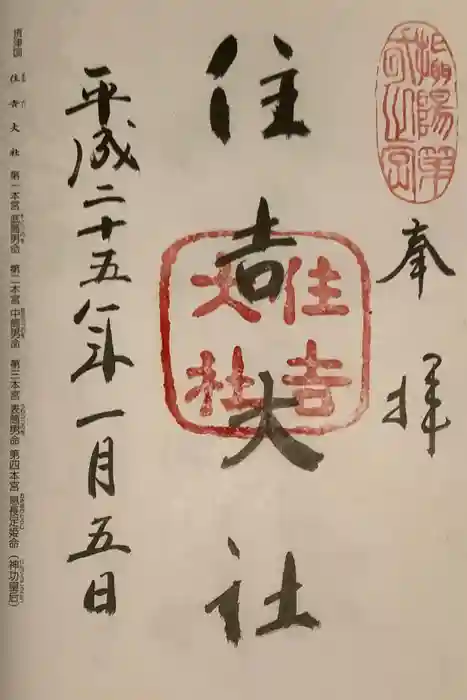 摂陽第一之宮
奉拝
住吉大社
住吉大社
平成二十五年一月五日
摂津国 住吉大社 第一本宮 底筒男命 第二本宮 中筒男命 第三本宮 表筒男命 第四本宮 息長足姫命(神功皇后)